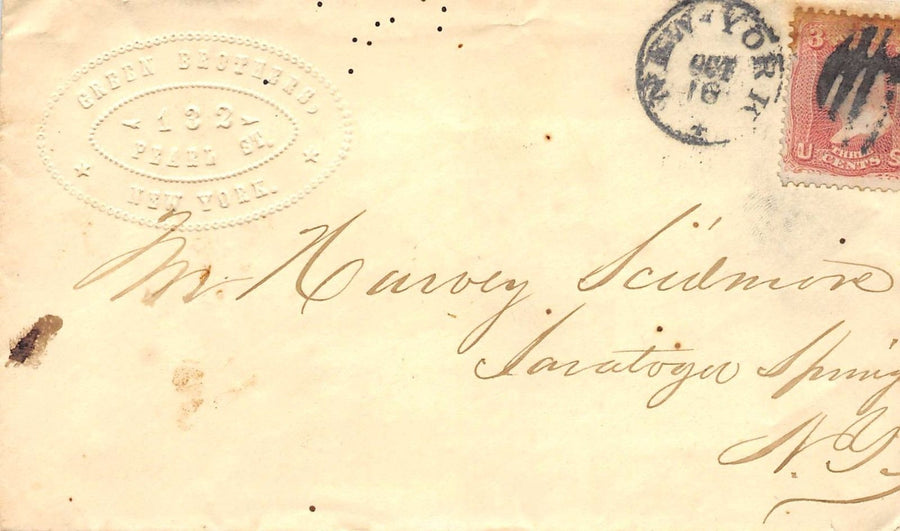 GREEN BROTHERS.
132
PEARL ST.
NEW YORK.
NEW-YORK
OCT
16
3
U S
CENTS
Mr Harvey Scidmore
Saratoga Spring
N.Y.